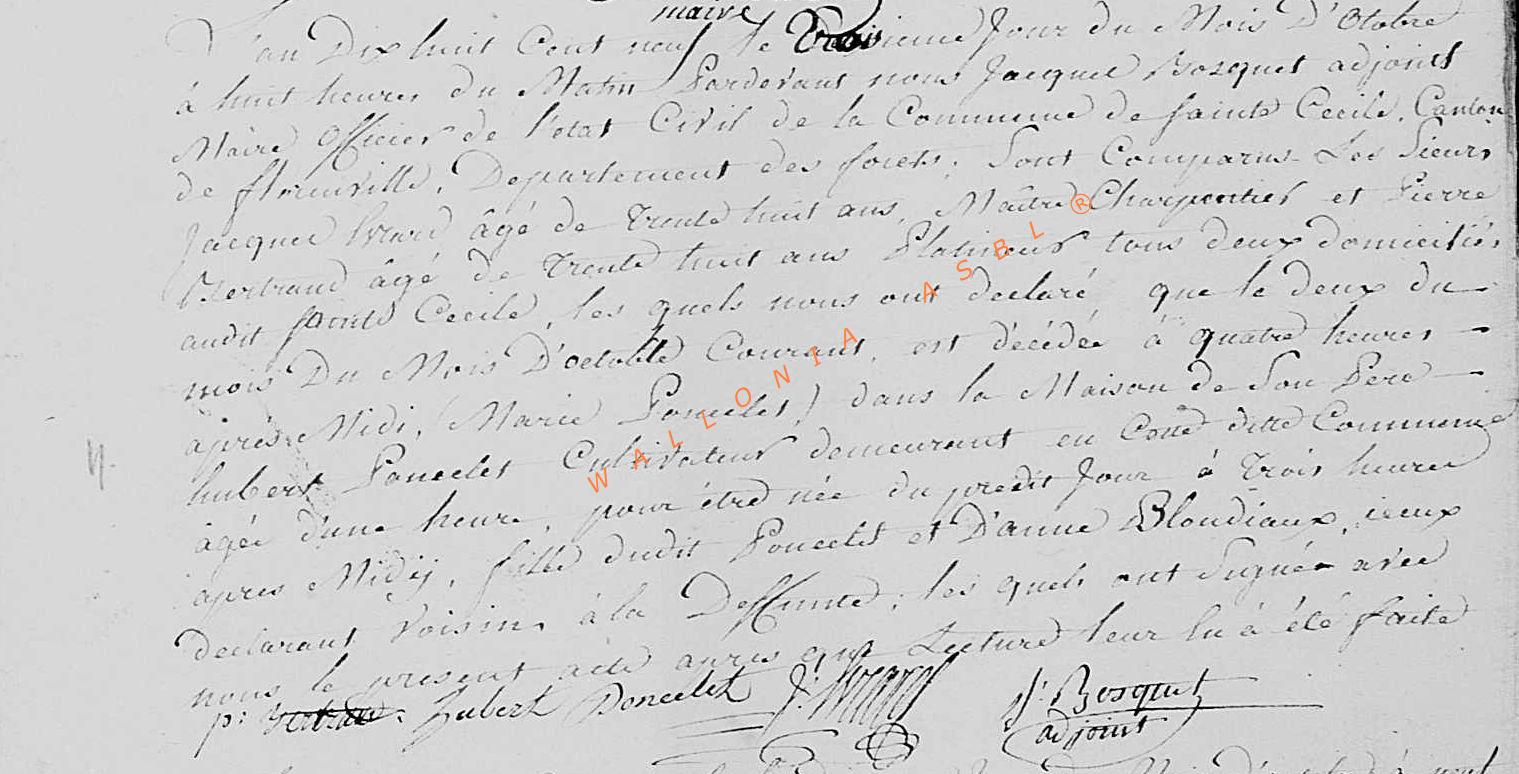 maire
L'an Dix huit Cent neuf le troisieme Jour du Mois D'Otobre
à huit heures du Matin Pardevant nous Jacques Bosquet adjoint
Maire Officier de l'etat Civil de la Commune de Sainte Cecile, Canton
de florenville, Departement des forets, Sont Comparus Les Sieurs
Jacques âgé de Trente huit ans, Maitre Charpentier et Pierre
Bertrand âgé de Trente huit ans Platineur tous deux domiciliés
audit Sainte Cecile, les quels nous ont declaré que le deux du
mois Du Mois D'octobre Courant, est décédée à quatre heures
après Midi, (Marie Poncelet) dans la Maison de Son Pere
hubert Poncelet Cultivateur demeurant en ditte Commune
âgée d'une heure, pour être née du predit Jour à Trois heures
apres Midij, fille dudit Poncelet et D'anne Blondiaux, iceux
declarant Voisins à la Deffunte, les quels ont Signée avec
nous le present acte apres que Lecture leur lu à été faite
p: Bertrand hubert Poncelet J: J: Bosquet
adjoint
WALLONIA ASBL ®